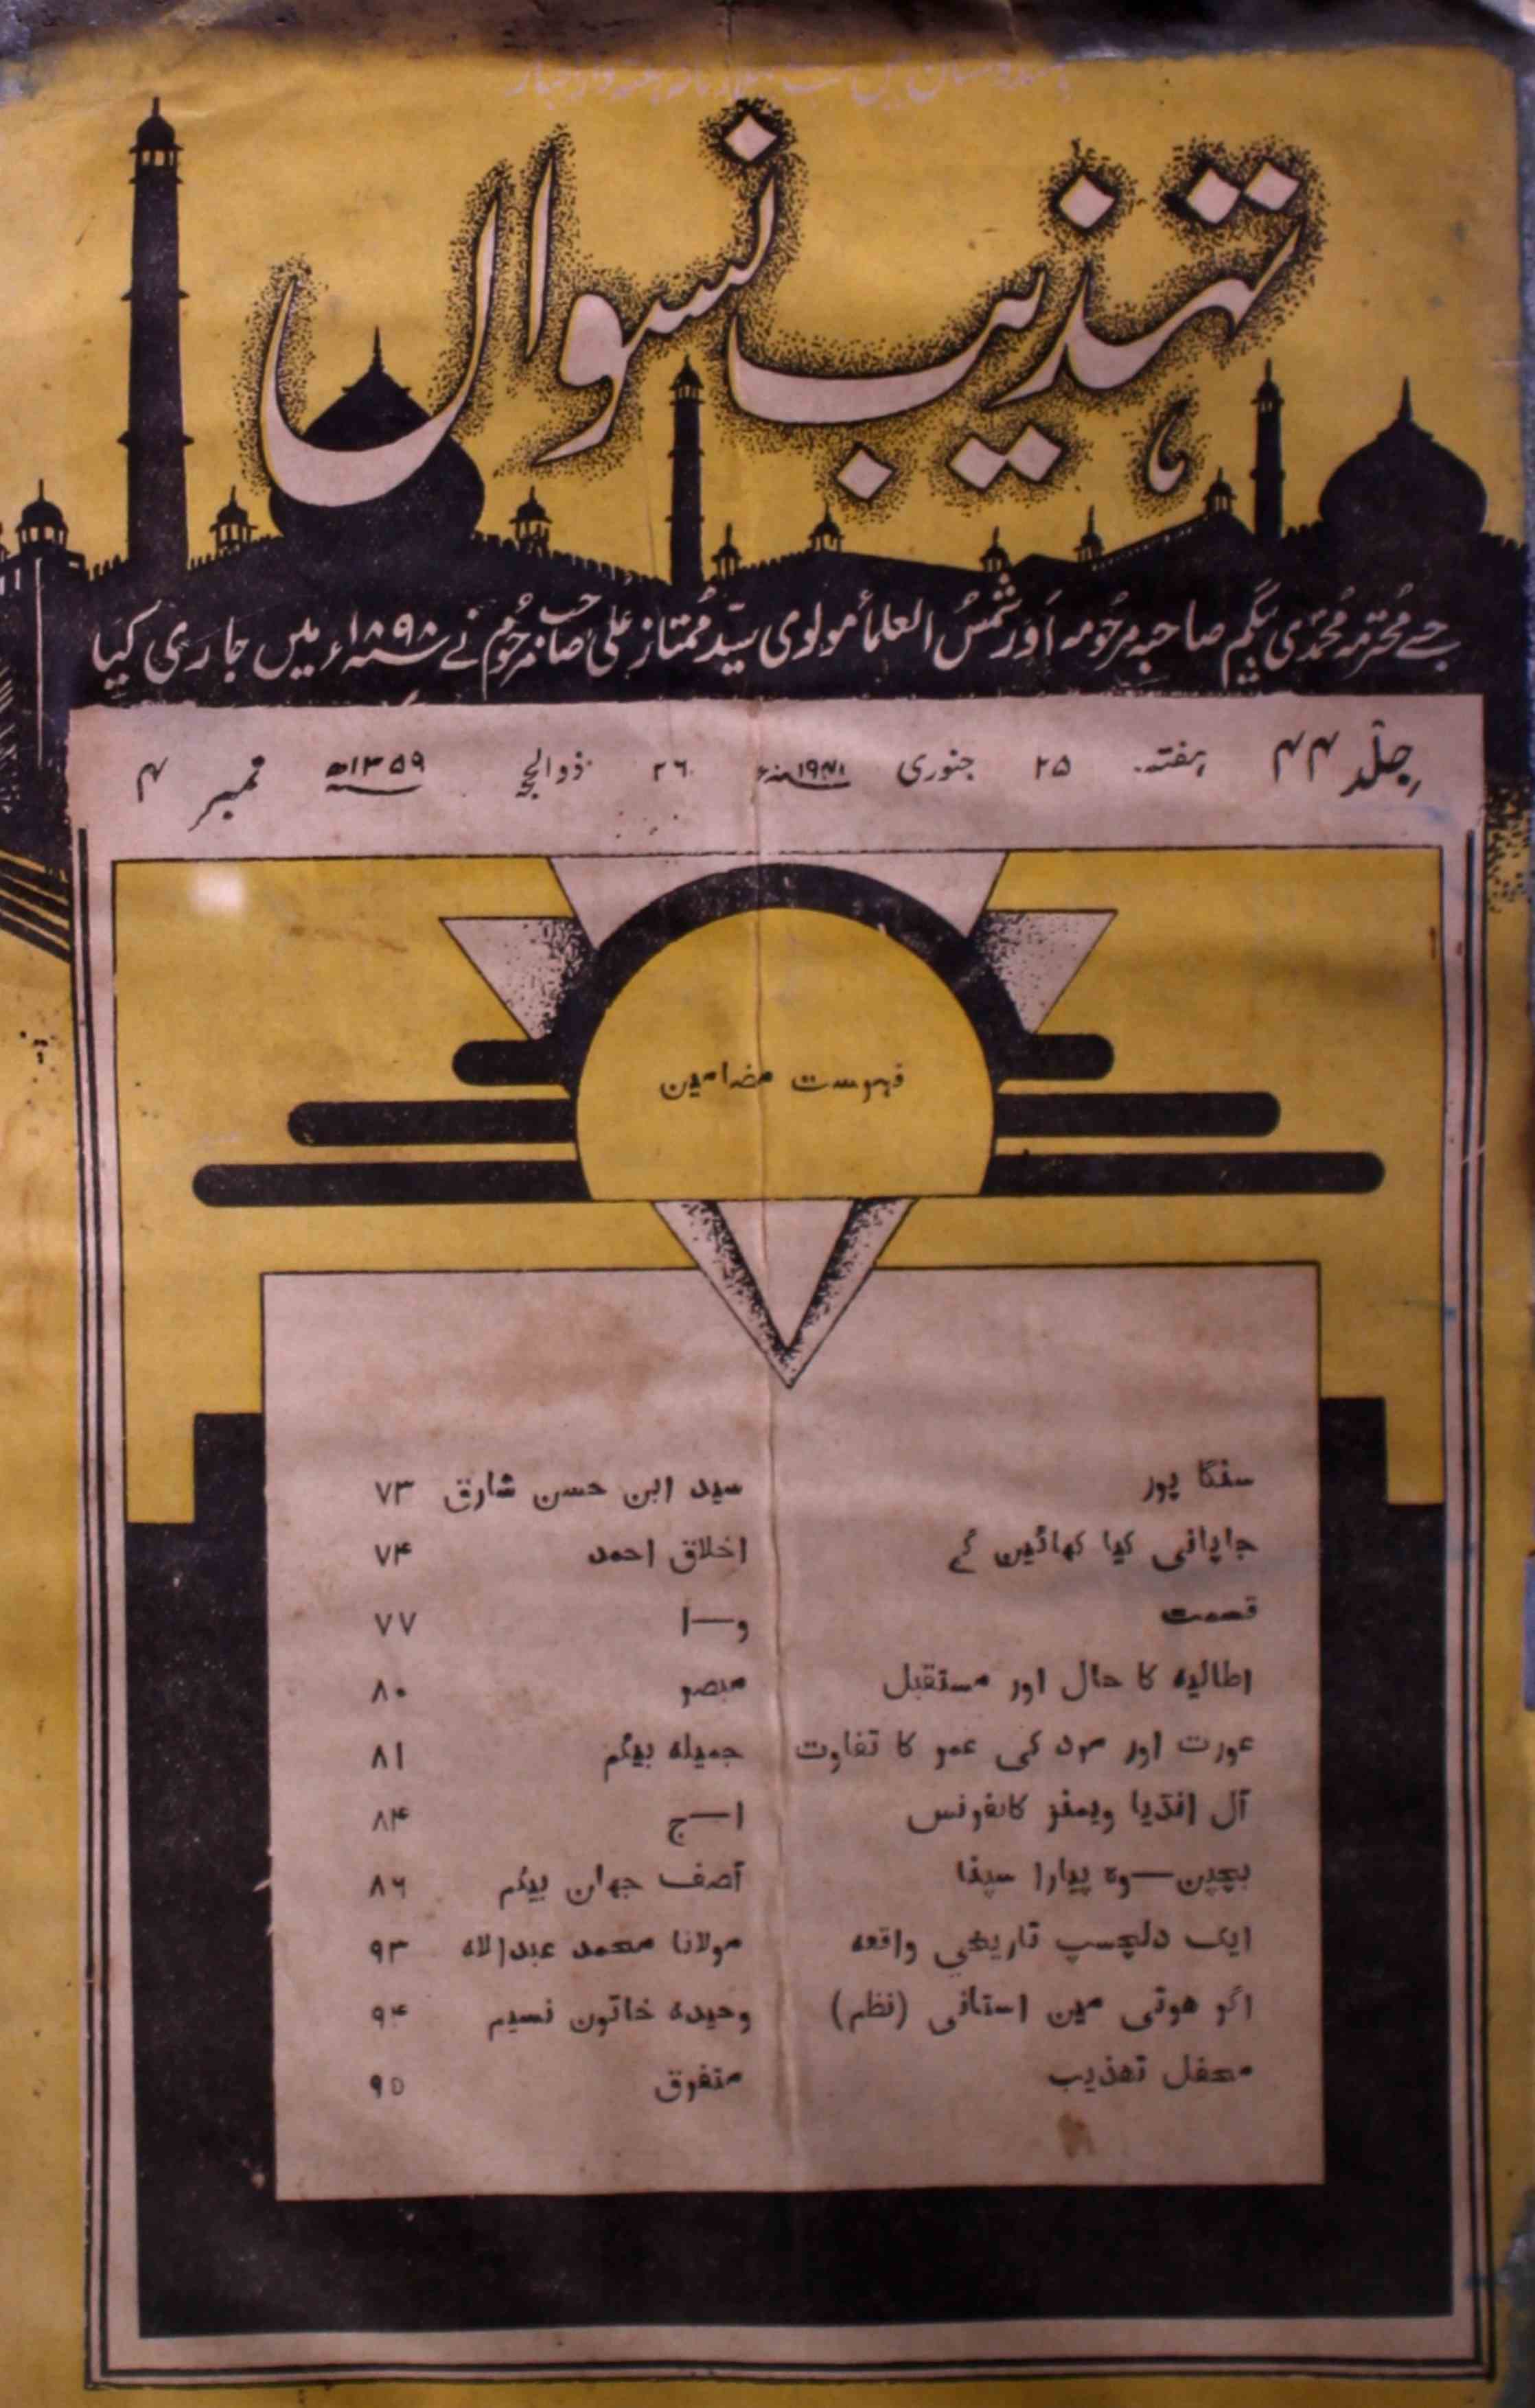 ہندوستان میں سب
تہذیب نسواں
جسے محترمہ محمدی بیگم صاحبہ مرحومہ اور شمس العلماء مولوی سید ممتاز علی صاحب مرحوم نے سنہ ۱۸۹۸ء میں جاری کیا
جلد ۴۴ ہفتہ ۲۵ جنوری سنہ ۱۹۴۱ء ۲۶ ذوالحجہ سنہ ۱۳۵۹ھ نمبر ۴
فہرست مضامین
سنگا پور سید ابن حسن شارق ۷۳
جاپانی کیا کھائیں گے اخلاق احمد ۷۴
قسمت و—ا ۷۷
اطالیہ کا حال اور مستقبل مبصر ۸۰
عورت اور مرد کی عمر کا تفاوت جمیلہ بیگم ۸۱
آل انڈیا ویمنز کانفرنس ا—ج ۸۴
بچپن—وہ پیارا سپنا آصف جہاں بیگم ۸۶
ایک دلچسپ تاریخی واقعہ مولانا محمد عبداللہ ۹۳
اگر ہوتی میں استانی (نظم) وحیدہ خاتون نسیم ۹۴
محفل تہذیب متفرق ۹۵